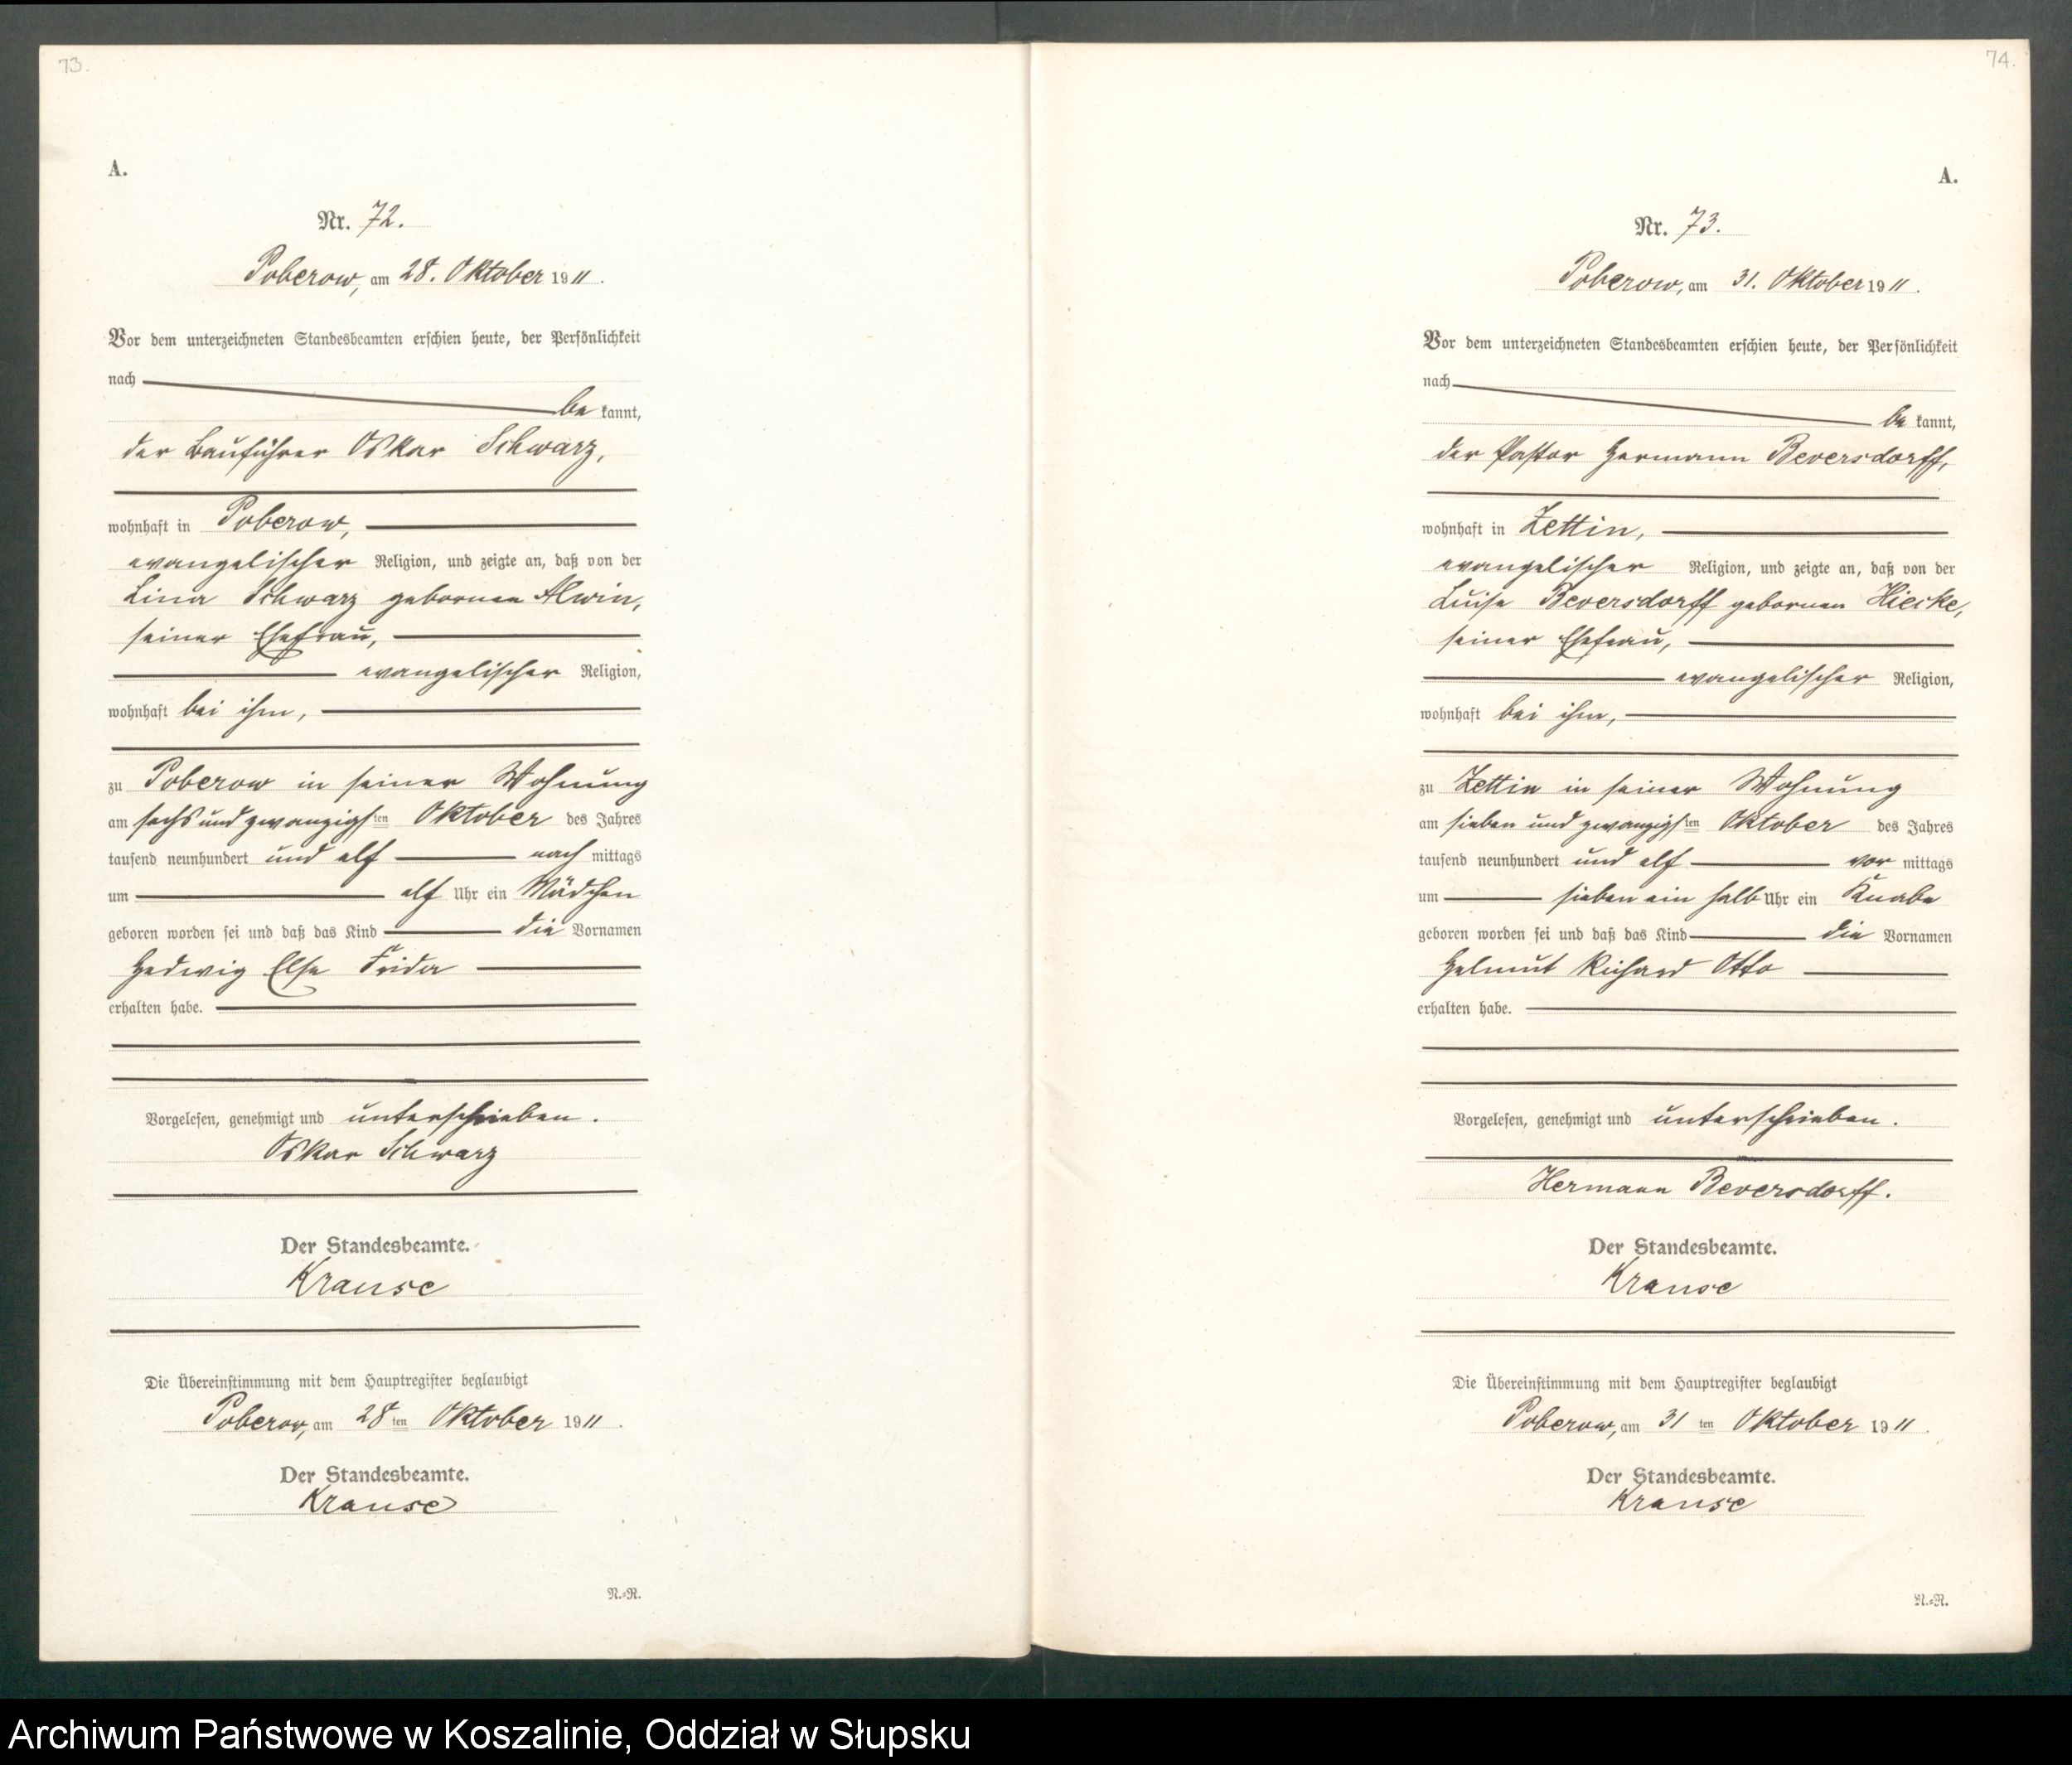 73.
A.
Nr. 72.
Poberow, am 28. Oktober 1911.
Vor dem unterzeichneten Standesbeamten erschien heute, der Persönlichkeit
nach
be kannt,
der Bauführer Oskar Schwarz,
wohnhaft in Poberow,
evangelischer Religion, und zeigte an, daß von der
Lina Schwarz geborenen Alwin,
seiner Ehefrau,
evangelischer Religion,
wohnhaft bei ihm,
zu Poberow in seiner Wohnung
am sechs und zwanzigsten Oktober des Jahres
tausend neunhundert und elf nach mittags
um elf Uhr ein Mädchen
geboren worden sei und daß das Kind die Vornamen
Hedwig Else Frida
erhalten habe.
Vorgelesen, genehmigt und unterschrieben.
Oskar Schwarz
Der Standesbeamte.
Krause
Die Übereinstimmung mit dem Hauptregister beglaubigt
Poberow, am 28ten Oktober 1911.
Der Standesbeamte.
Krause
N.=R.
74.
A.
Nr. 73.
Poberow, am 31. Oktober 1911.
Vor dem unterzeichneten Standesbeamten erschien heute, der Persönlichkeit
nach
be kannt,
der Pastor Hermann Beversdorff,
wohnhaft in Zettin,
evangelischer Religion, und zeigte an, daß von der
Luise Beversdorff geborenen Hiecke,
seiner Ehefrau,
evangelischer Religion,
wohnhaft bei ihm,
zu Zettin in seiner Wohnung
am sieben und zwanzigsten Oktober des Jahres
tausend neunhundert und elf vor mittags
um sieben ein halb Uhr ein Knabe
geboren worden sei und daß das Kind die Vornamen
Helmut Richard Otto
erhalten habe.
Vorgelesen, genehmigt und unterschrieben.
Hermann Beversdorff.
Der Standesbeamte.
Krause
Die Übereinstimmung mit dem Hauptregister beglaubigt
Poberow, am 31ten Oktober 1911.
Der Standesbeamte.
Krause
N.=R.
Archiwum Państwowe w Koszalinie, Oddział w Słupsku